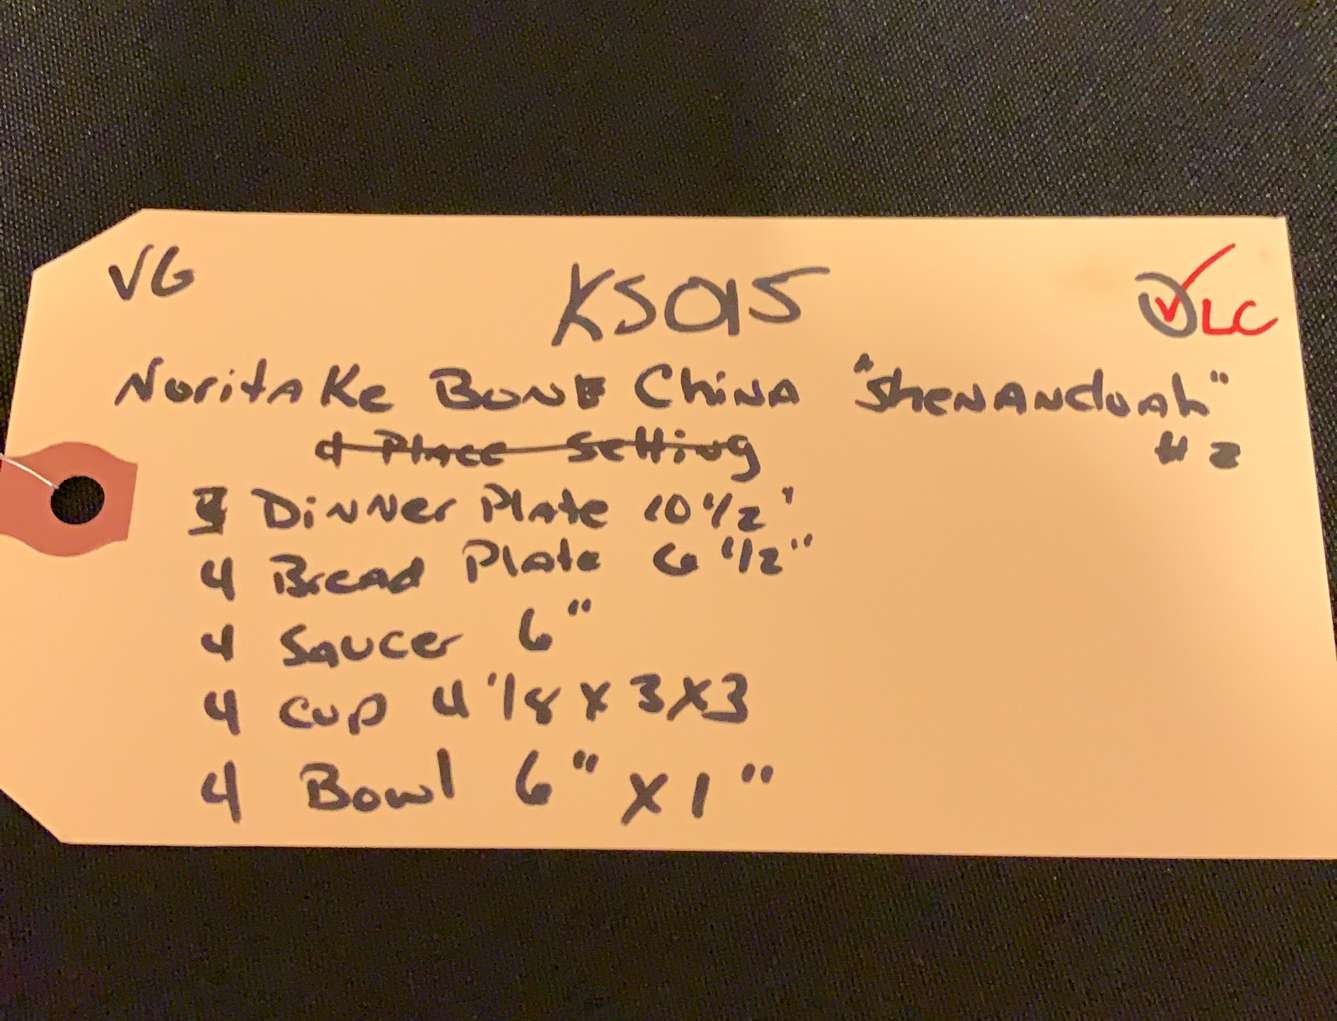 VG
KS015
LC
Noritake Bone China "Shenandoah"
4 Place Setting
# 2
Dinner Plate 10 1/2"
4 Bread Plate 6 1/2"
4 Saucer 6"
4 Cup 4 1/8 x 3 x 3
4 Bowl 6" x 1"